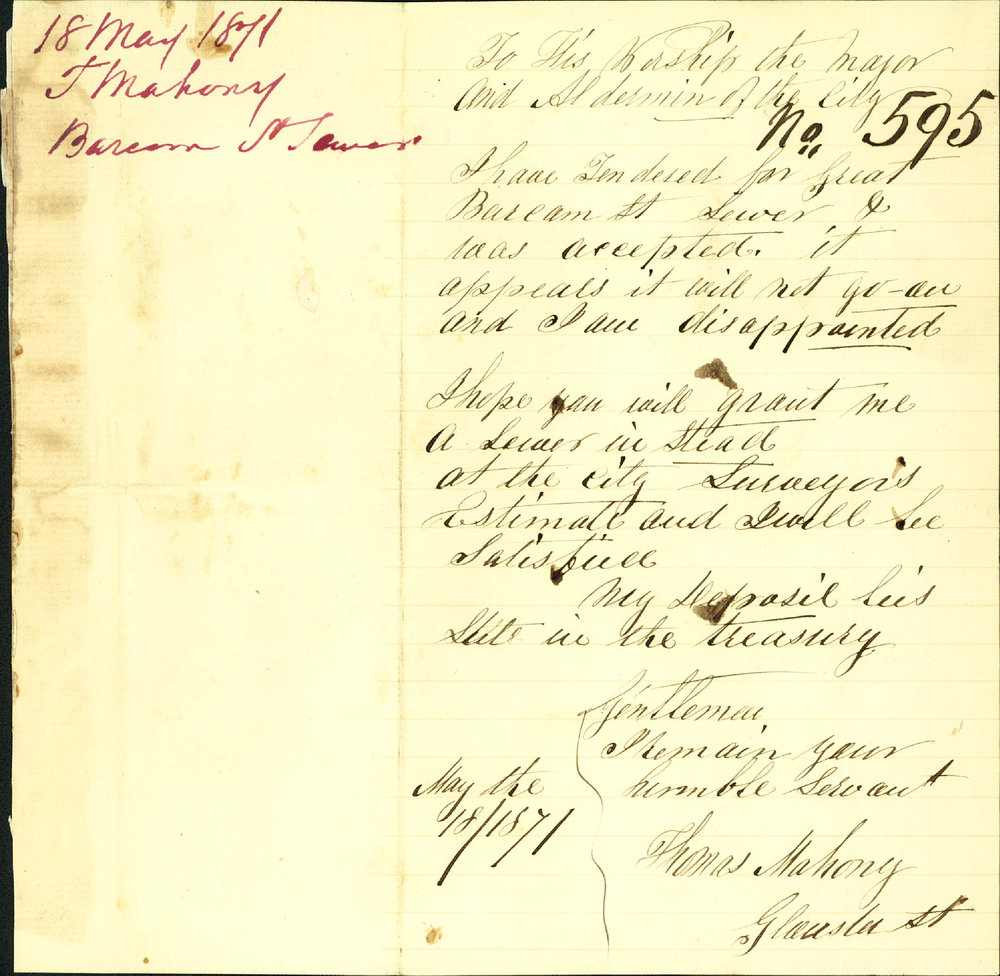 18 May 1871
T Mahony
Barcom St Sewer
To His Worship the Mayor
and Aldermin of the City
No. 595
I have Tendered for Great
Barcam St Sewer &
was accepted. it
appears it will not go-on
and I am disappointed
I hope you will grant me
A Sewer in Stead
at the City Surveyors
Estimate and I will be
Satisfied
My Deposit lies
Still in the treasury
Gentlemen
I Remain your
humble Servant
May the
18/1871
Thomas Mahony
Glouster St